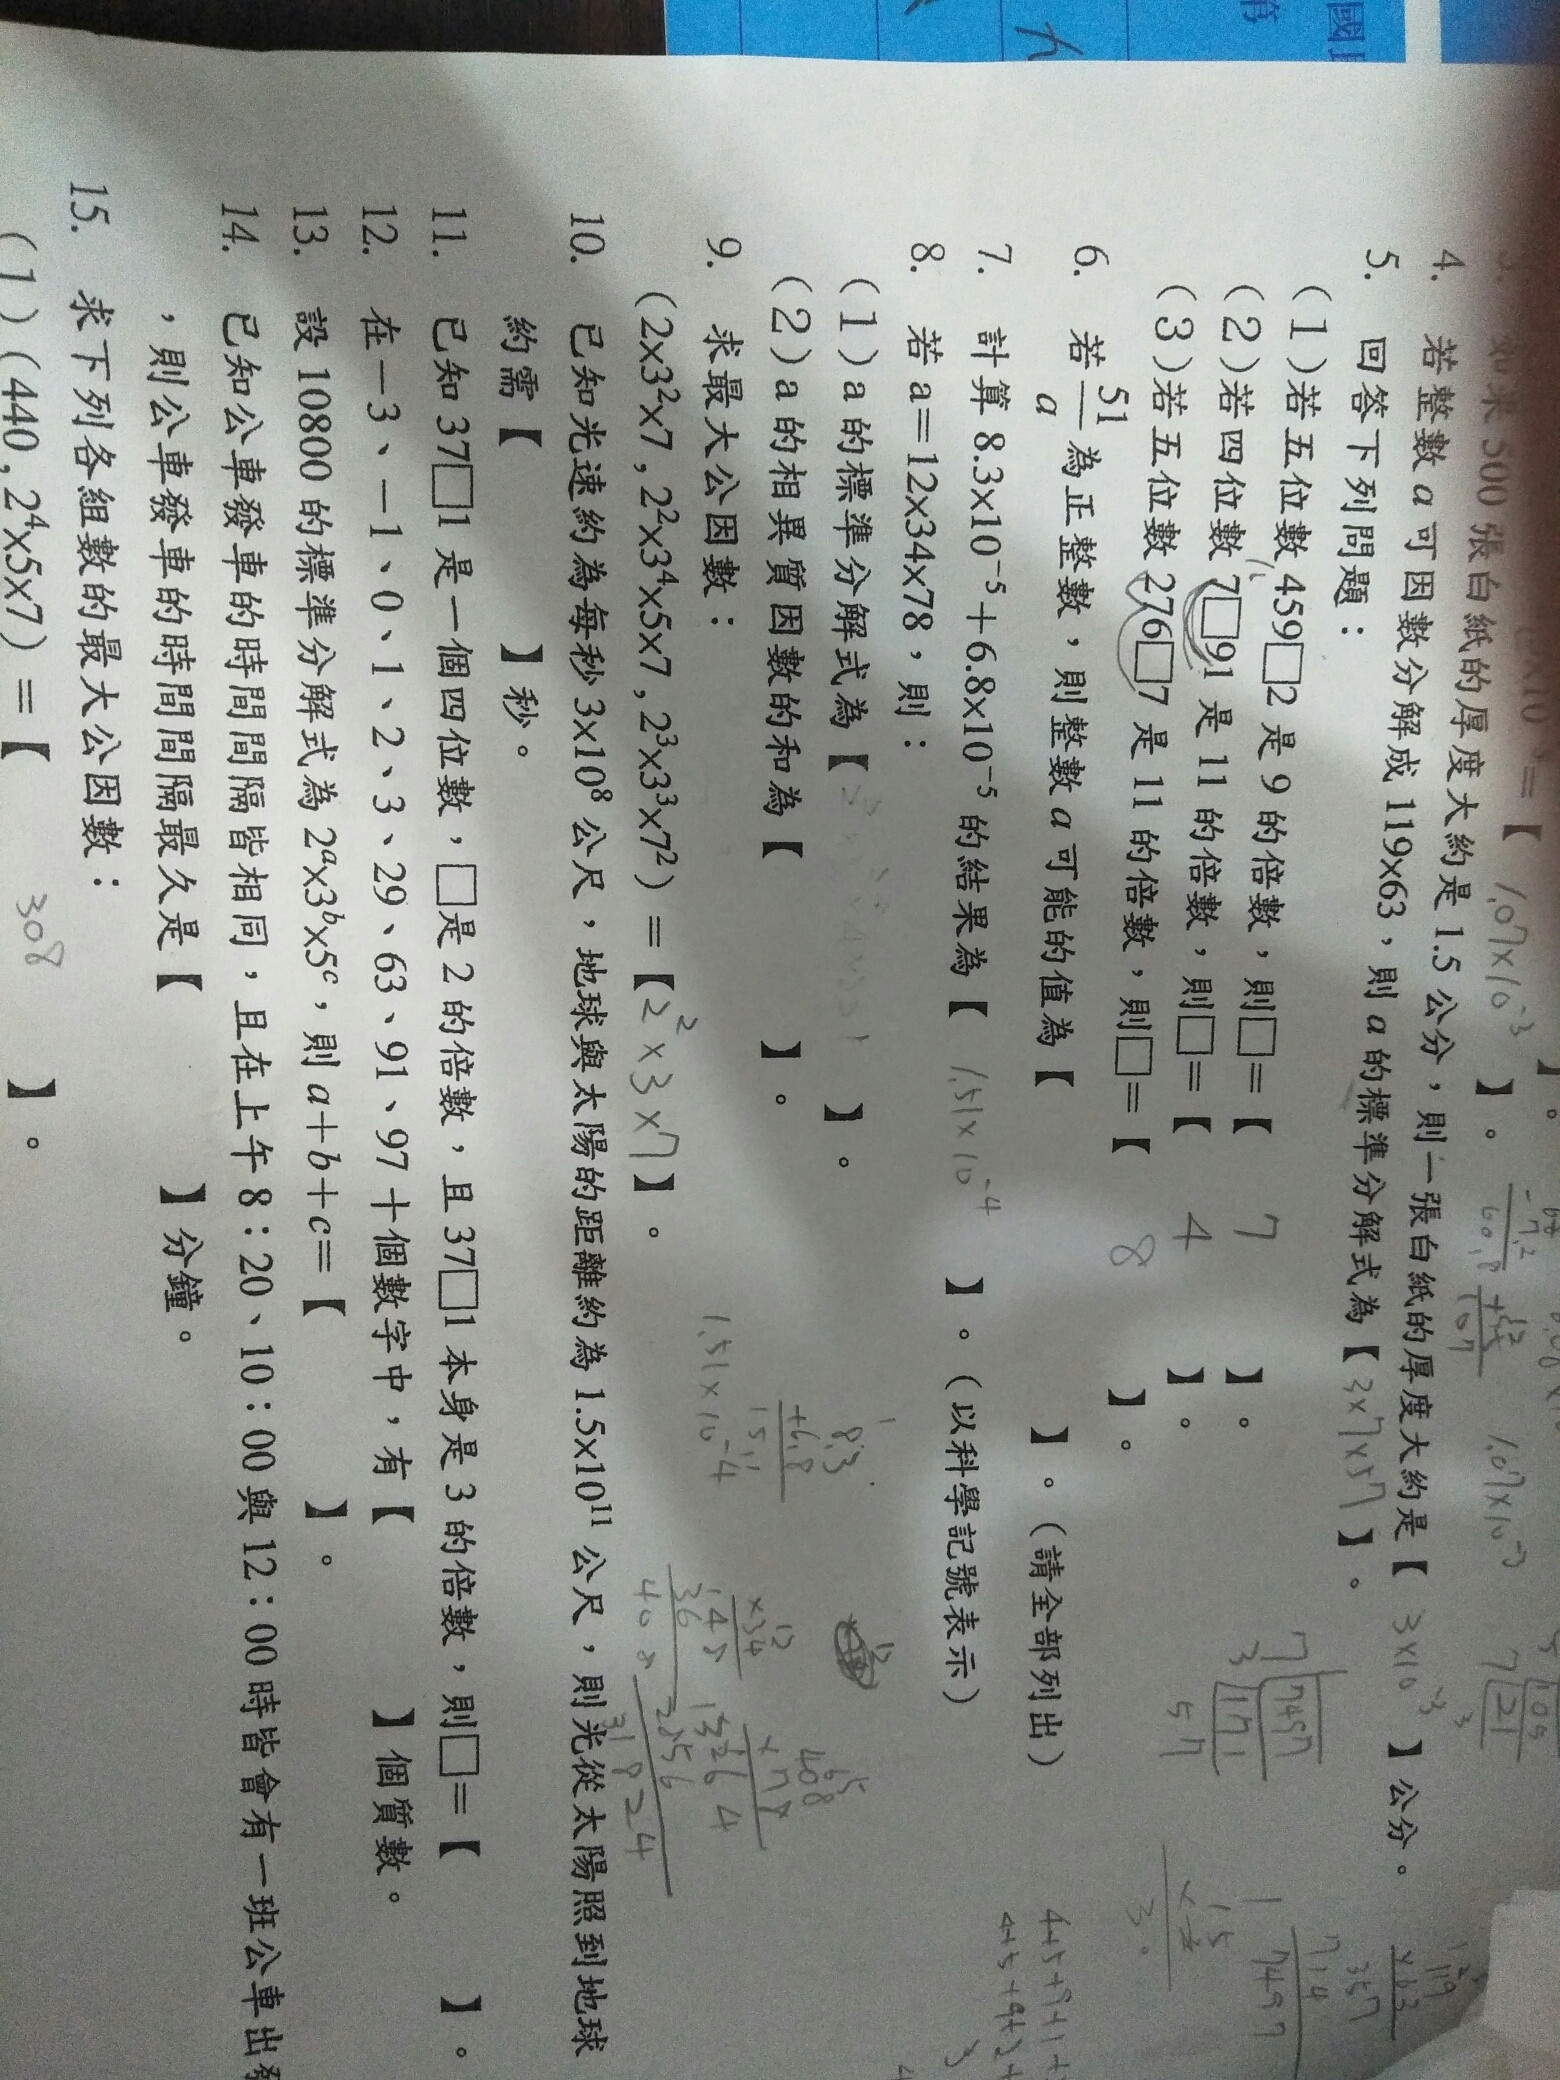 國
第
九
如果 500 張白紙的厚度大約是 1.5 公分，則一張白紙的厚度大約是【 3×10⁻³ 】公分。
=【 1.07×10⁻³ 】。
1.07×10⁻³
4. 若整數 a 可因數分解成 119×63，則 a 的標準分解式為【 3×7×57 】。
5. 回答下列問題：
(1) 若五位數 459□2 是 9 的倍數，則□=【 7 】。
(2) 若四位數 7□91 是 11 的倍數，則□=【 4 】。
(3) 若五位數 276□7 是 11 的倍數，則□=【 8 】。
6. 若 51/a 為正整數，則整數 a 可能的值為【 】。(請全部列出)
7. 計算 8.3×10⁻⁵＋6.8×10⁻⁵ 的結果為【 1.51×10⁻⁴ 】。(以科學記號表示)
8. 若 a＝12×34×78，則：
(1) a 的標準分解式為【 】。
(2) a 的相異質因數的和為【 】。
9. 求最大公因數：
(2×3²×7 , 2²×3⁴×5×7 , 2³×3³×7²)＝【2²×3×7】。
10. 已知光速約為每秒 3×10⁸ 公尺，地球與太陽的距離約為 1.5×10¹¹ 公尺，則光從太陽照到地球
約需【 】秒。
11. 已知 37□1 是一個四位數，□是 2 的倍數，且 37□1 本身是 3 的倍數，則□=【 】。
12. 在－3、－1、0、1、2、3、29、63、91、97 十個數字中，有【 】個質數。
13. 設 10800 的標準分解式為 2ᵃ×3ᵇ×5ᶜ，則 a＋b＋c＝【 】。
14. 已知公車發車的時間間隔皆相同，且在上午 8：20、10：00 與 12：00 時皆會有一班公車出發
，則公車發車的時間間隔最久是【 】分鐘。
15. 求下列各組數的最大公因數：
(1) (440 , 2⁴×5×7)＝【 308 】。
8.3
+6.8
15.1
1.51×10⁻⁴
12
×34
48
36
408
408
×78
3264
2856
31824
7 7497
3 1071
57
119
×63
357
714
7497